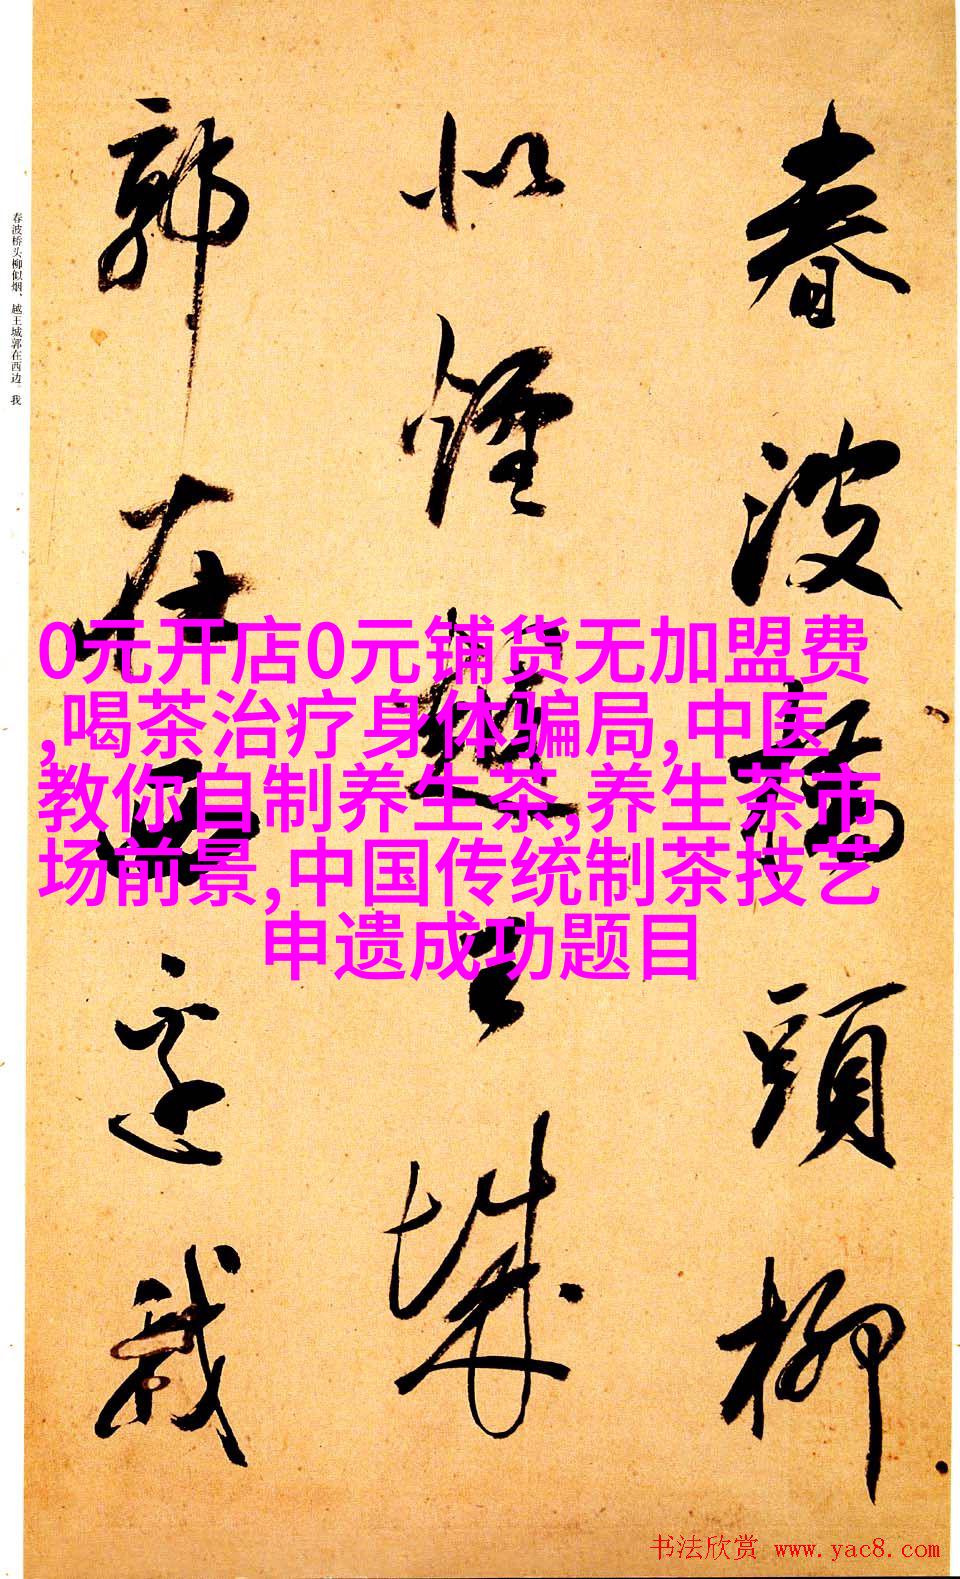 春波橋頭柳
似煙越王城
郭在西邊我
春波桥头柳似烟、越王城郭在西边。我
0元开店0元铺货无加盟费
,喝茶治疗身体骗局,中医
教你自制养生茶,养生茶市
场前景,中国传统制茶技艺
申遗成功题目
书法欣赏 www.yac8.com